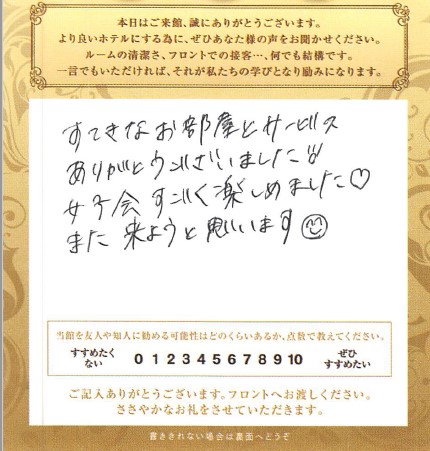 本日はご来館、誠にありがとうございます。
より良いホテルにする為に、ぜひあなた様の声をお聞かせください。
ルームの清潔さ、フロントでの接客…、何でも結構です。
一言でもいただければ、それが私たちの学びとなり励みになります。
すてきなお部屋とサービス
ありがとうございました!!
女子会すごく楽しめました♡
また来ようと思います☺
当館を友人や知人に勧める可能性はどのくらいあるか、点数で教えてください。
すすめたくない 0 1 2 3 4 5 6 7 8 9 10 ぜひすすめたい
ご記入ありがとうございます。フロントへお渡しください。
ささやかなお礼をさせていただきます。
書ききれない場合は裏面へどうぞ